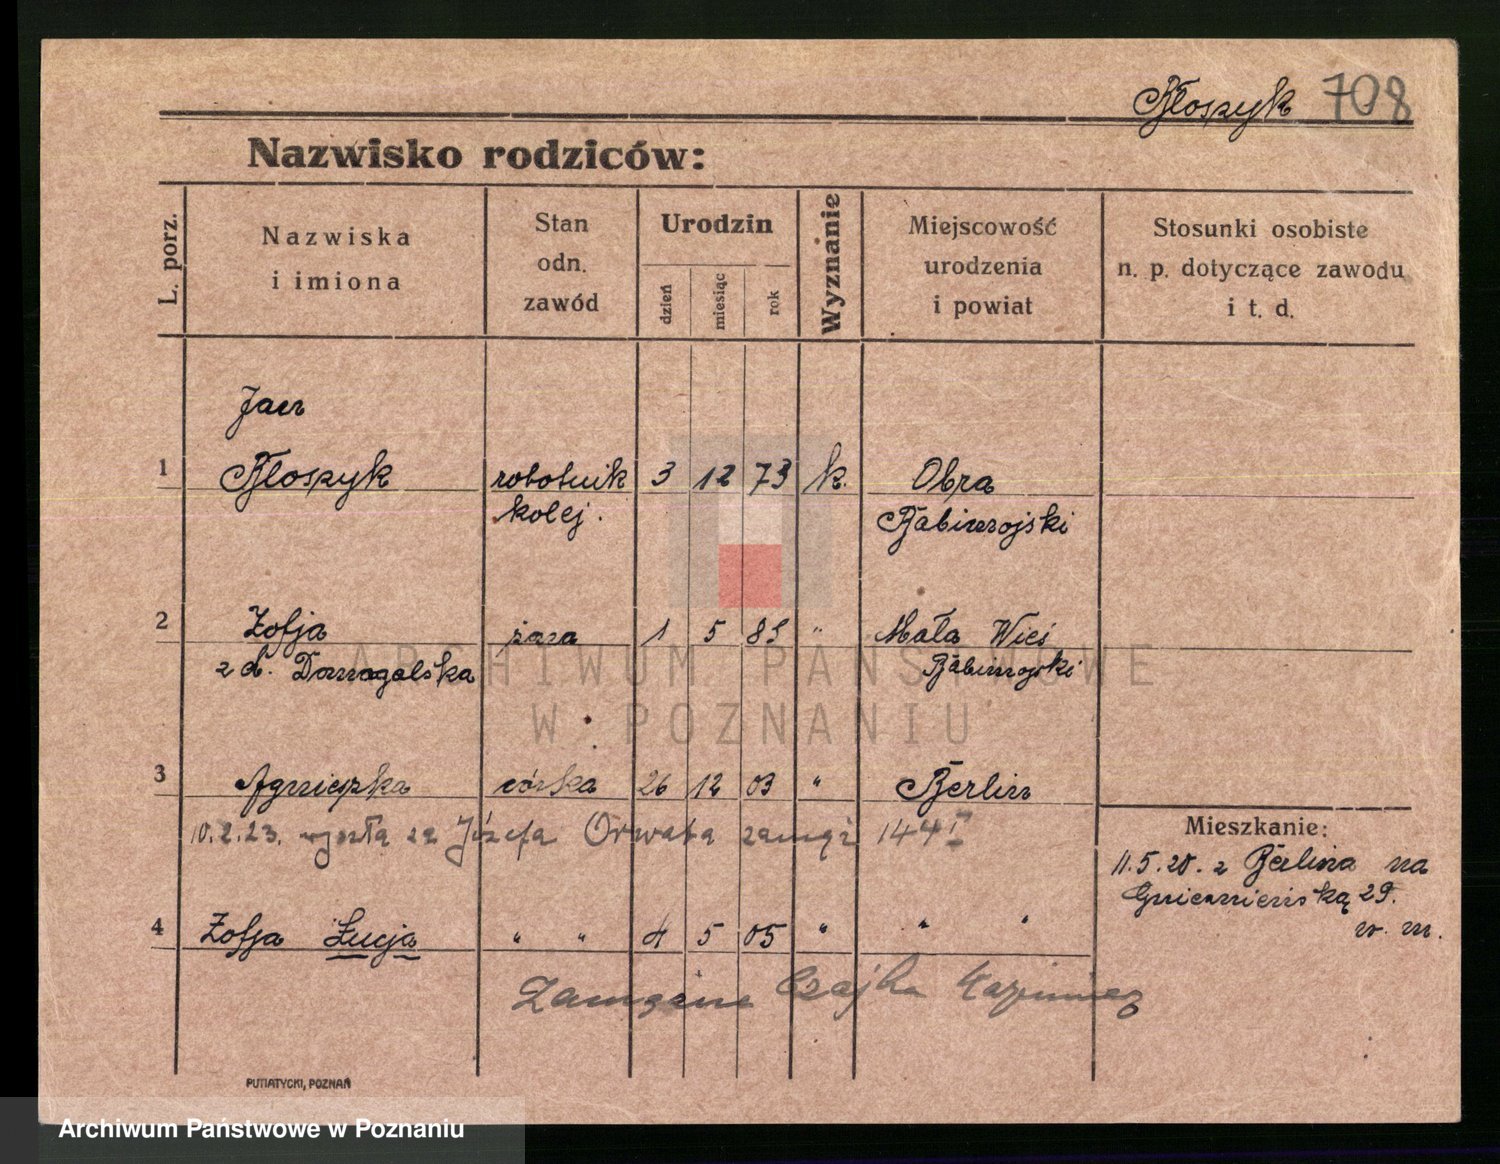 Błoszyk 708
Nazwisko rodziców:
L. porz.
Nazwiska
i imiona
Stan
odn.
zawód
Urodzin
dzień
miesiąc
rok
Wyznanie
Miejscowość
urodzenia
i powiat
Stosunki osobiste
n. p. dotyczące zawodu
i t. d.
Jan
1 Błoszyk robotnik 3 12 73 k. Obra
kolej. Babimojski
2 Zofja żona 1 5 85 " Mała Wieś
z d. Domagalska Babimojski
3 Agnieszka córka 26 12 03 " Berlin
10.2.23. wyszła za Józefa Orwata zamąż 144 I
Mieszkanie:
11.5.20. z Berlina na
Gnieźnieńską 29.
w. m.
4 Zofja Łucja " " 4 5 05 " " "
Zamężna Czajka Kazimierz
PUTIATYCKI, POZNAŃ
ARCHIWUM PAŃSTWOWE
W POZNANIU
Archiwum Państwowe w Poznaniu